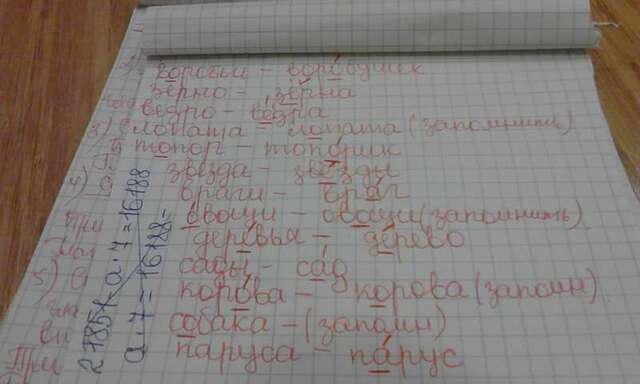 воробьи - воробушек
зерно - зёрна
ведро - вёдра
3) лопата - лопата (запомнить)
топор - топорик
4) звезда - звёзды
враги - враг
При овощи - овощи (запомнить)
деревья - дерево
5) сады - сад
корова - корова (запомн)
собака - (запомн)
При паруса - парус
27851 - а · 7 = 16188
а · 7 = 16188 -